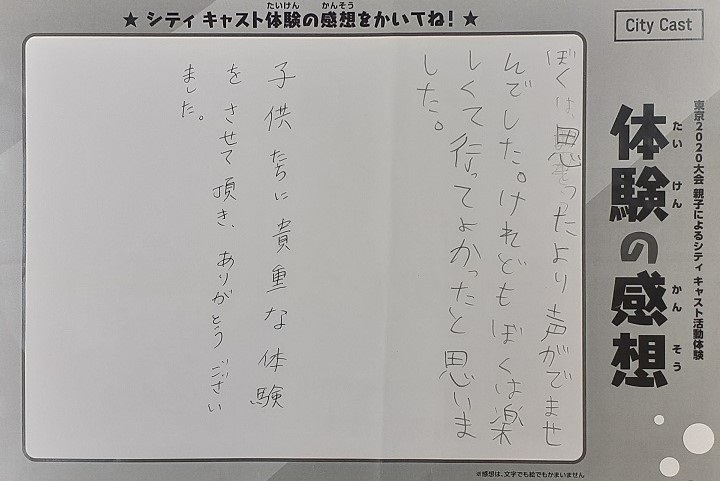 ★ シティ キャスト体験の感想をかいてね！ ★
たいけん かんそう
City Cast
東京2020大会 親子によるシティ キャスト活動体験
体験の感想
たい けん かん そう
ぼくは、思ったより声がでませ
んでした。けれどもぼくは楽
しくて行ってよかったと思いま
した。
子供たちに貴重な体験
をさせて頂き、ありがとうござい
ました。
※感想は、文字でも絵でもかまいません